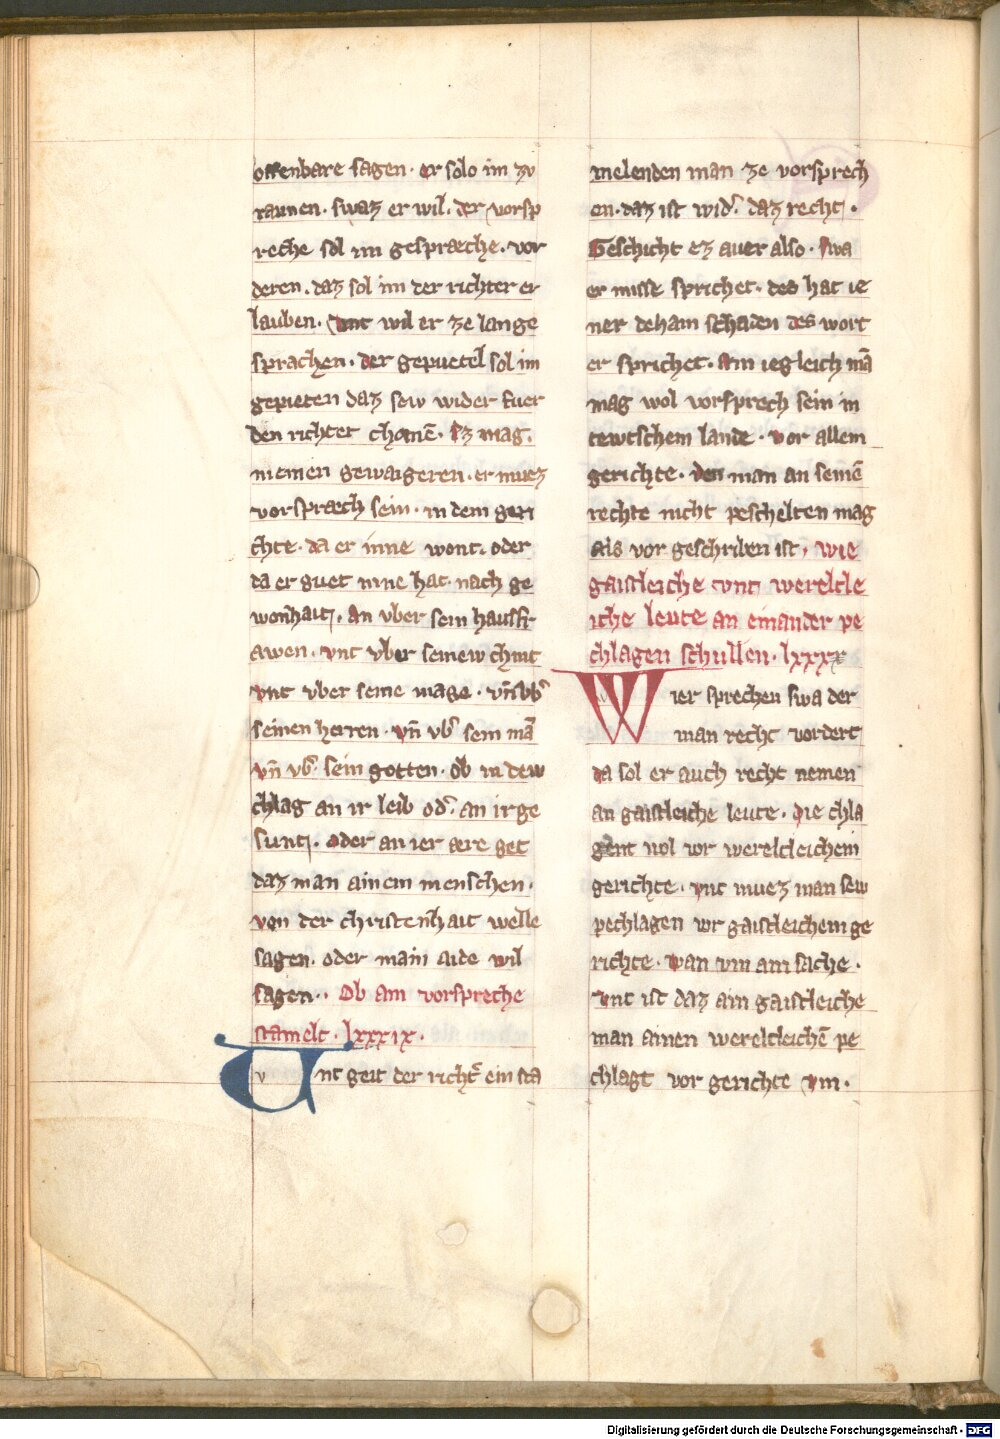 offenbare sagen. er solo im zv
raunen. swaz er wil. der vorsp
reche sol im gespræche. vor
deren. daz sol im der richter er
lauben. vnt wil er ze lange
sprachen. der gepuetel sol im
gepieten daz sew wider fuer
den richter chomē. Ez mag.
niemen gewaigeren. er muez
vorspræch sein. in dem geri
chte. da er inne wont. oder
da er guet inne hat. nach ge
wonhait. An vber sein hausfr
awen. vnt vber seinew chint
vnt vber seine mage. vn̄ vb᾽
seinen herren. vn̄ vb᾽ sein mā
vn̄ vb᾽ sein gotten. ob in dew
chlag an ir leib od᾽. an ir ge
sunt. oder an ier ære get
daz man ainem menschen.
von der christenhait welle
sagen. oder main aide wil
sagen.. Ob ain vorspreche
stamelt. lxxxix.
Vnt geit der richt᾽ ein sta
melenden man ze vorsprech
en. daz ist wid᾽. daz recht.
Geschicht ez auer also. swa
er misse sprichet. des hat ie
ner dehain schaden des wort
er sprichet. Ain iegleich mā
mag wol vorsprech sein in
tewtschem lande. vor allem
gerichte. den man an seinē
rechte nicht peschelten mag
als vor geschriben ist, wie
gaistleiche vnt wereltle
iche leute an einander pe
chlagen schullen. lxxxx
Wier sprechen swa der
man recht vordert
da sol er auch recht nemen
an gaistleiche leute. Die chla
gent uol vor wereltleichem
gerichte. vnt muez man sew
pechlagen vor gaistleichem ge
richte. wan vm ain sache.
vnt ist daz ain gaistleiche
man ainen wereltleichē pe
chlagt vor gerichte vm.
Digitalisierung gefördert durch die Deutsche Forschungsgemeinschaft - DFG